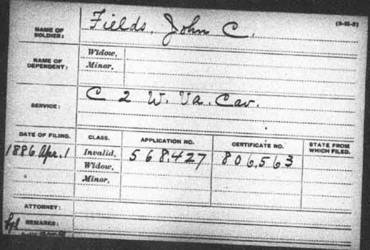 NAME OF SOLDIER: Fields, John C.
NAME OF DEPENDENT: Widow,
Minor,
SERVICE: C 2 W. Va. Cav.
DATE OF FILING. CLASS. APPLICATION NO. CERTIFICATE NO. STATE FROM WHICH FILED.
1886 Apr. 1 Invalid, 568427 806563
Widow,
Minor,
ATTORNEY:
REMARKS: